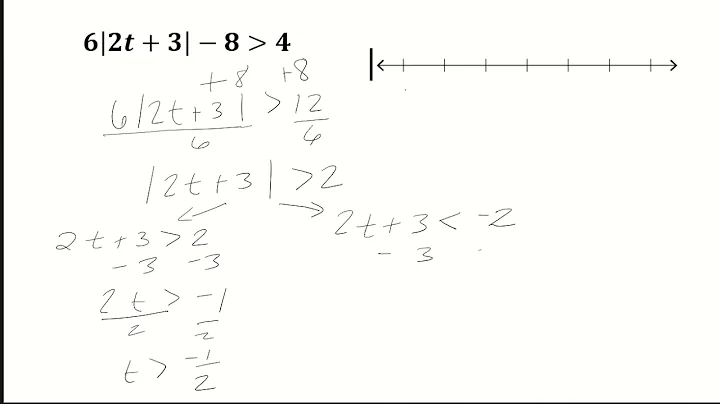 6|2t + 3| − 8 > 4
+8 +8
6|2t+3| > 12
6 6
|2t+3| > 2
2t+3 > 2
-3 -3
2t > -1
2 2
t > -1/2
2t+3 < -2
- 3